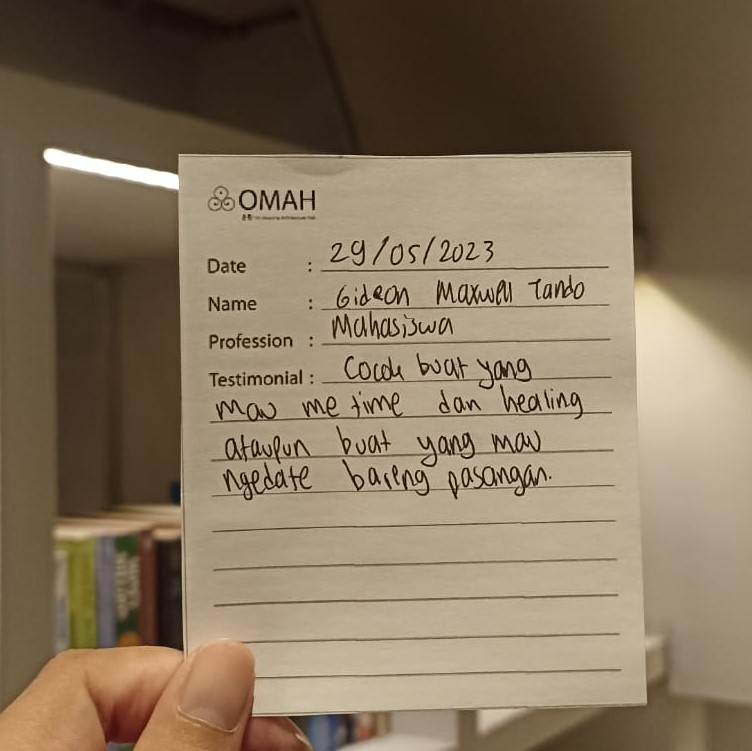 OMAH
Date : 29/05/2023
Name : Gideon Maxwell Tando
Profession : Mahasiswa
Testimonial : Cocok buat yang
mau me time dan healing
ataupun buat yang mau
ngedate bareng pasangan.